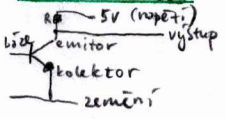 R 5V (napětí)
výstup
báze
emitor
kolektor
zemění